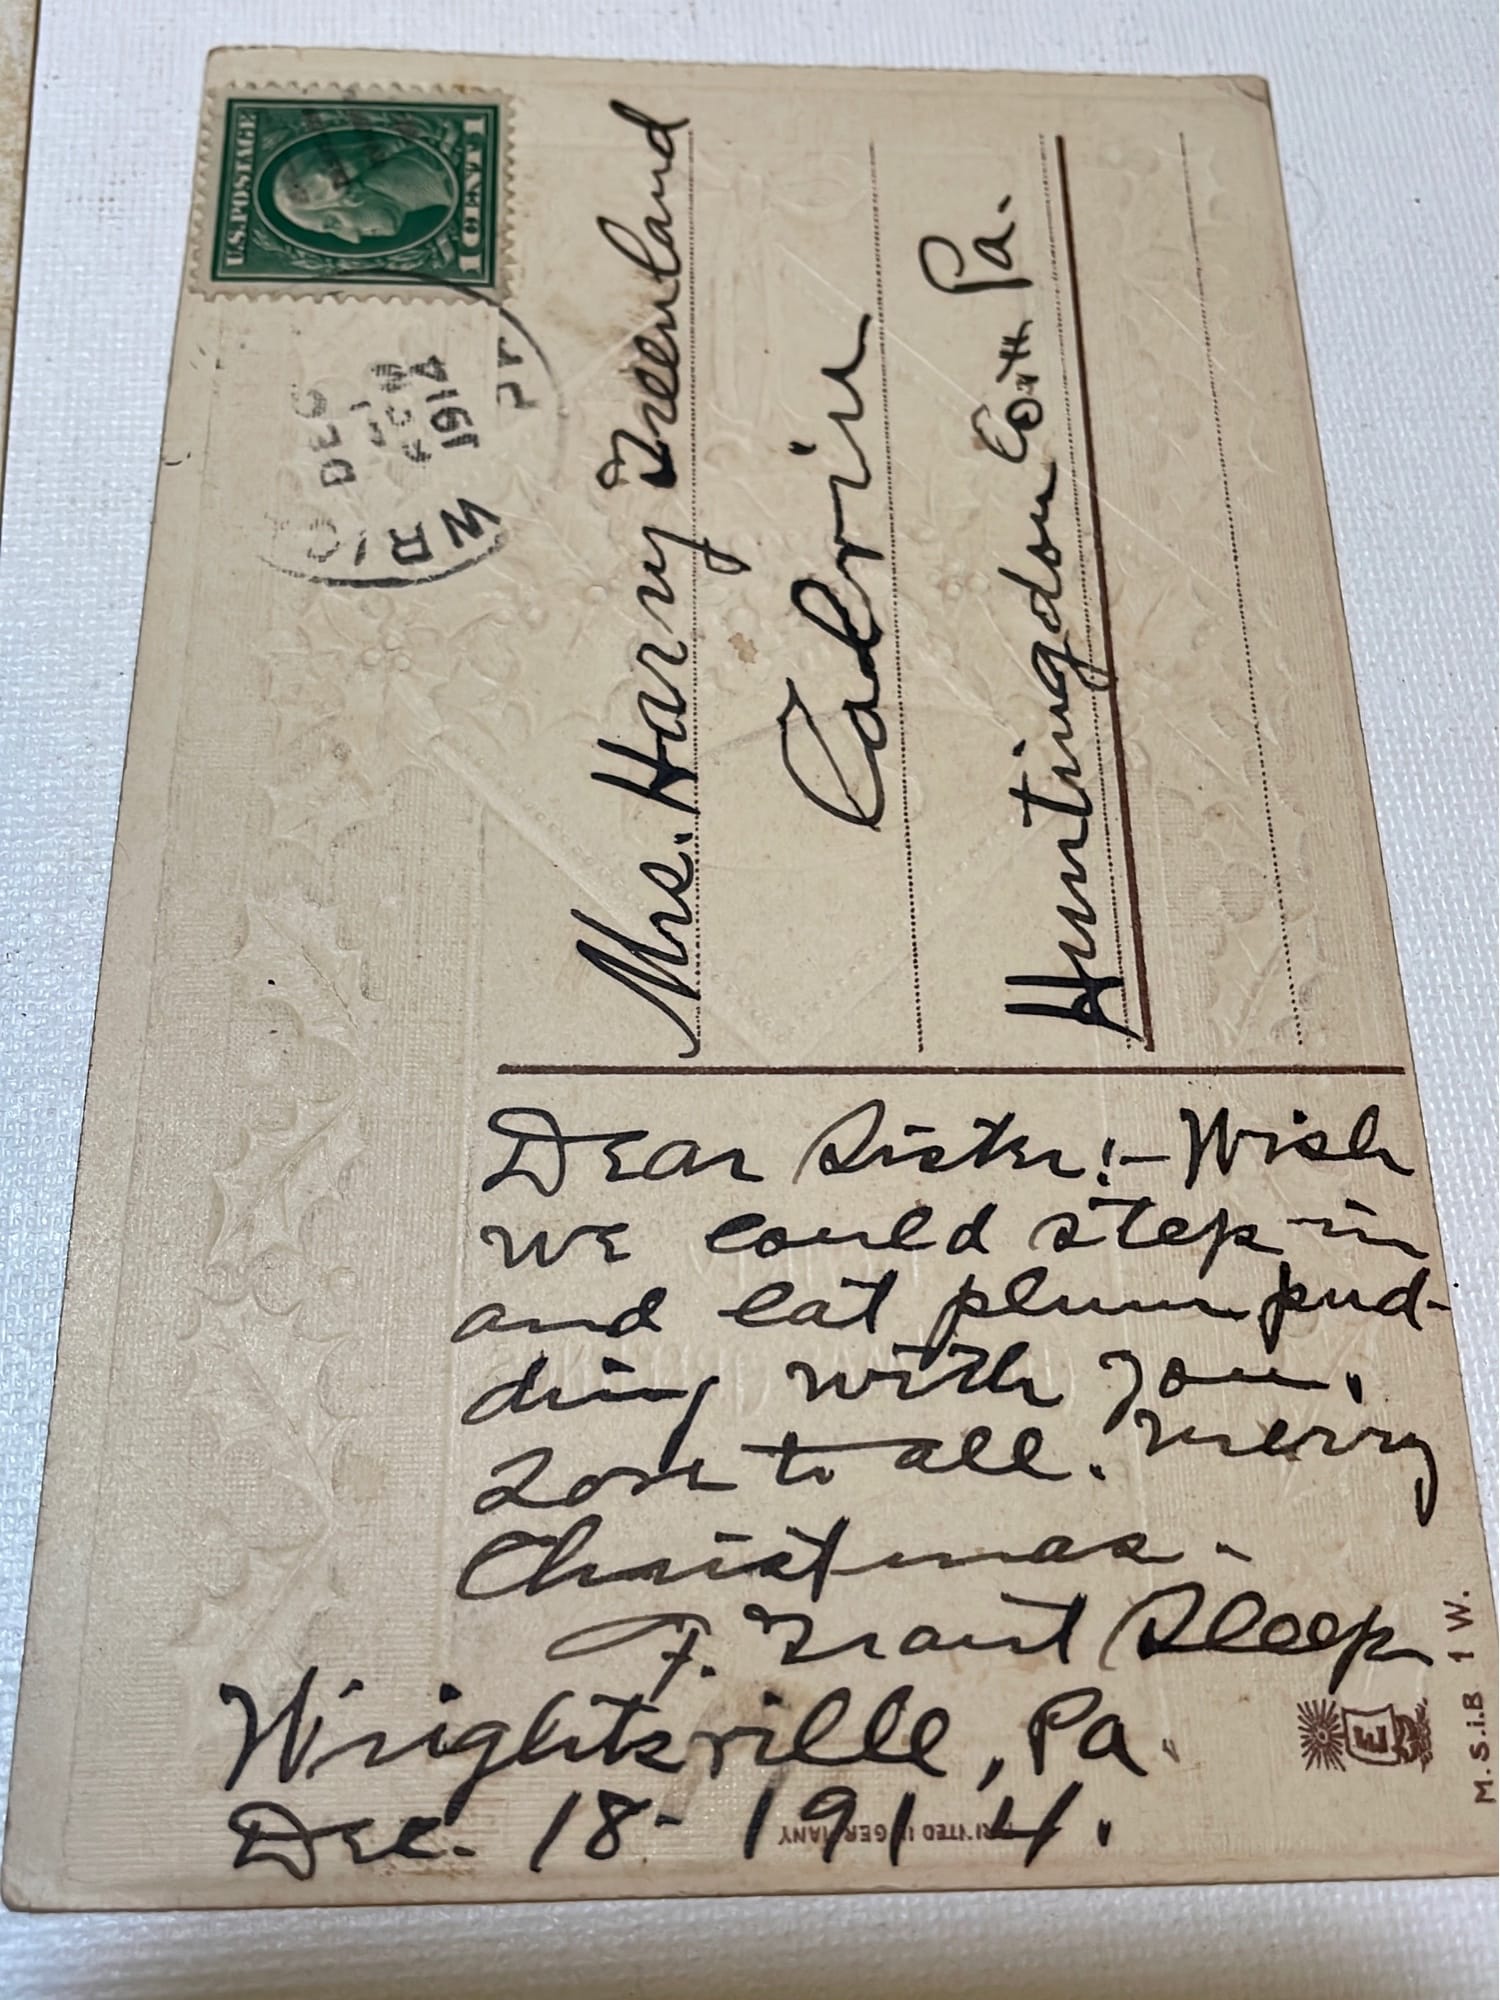 U.S. POSTAGE
1 CENT 1
WRIG
DEC
1914
PA
Mrs. Harry Greenland
Calvin
Huntingdon Co. Pa.
Dear Sister:- Wish
we could step in
and eat plum pud-
ding with you.
Love to all. Merry
Christmas -
F. Grant Sloop
Wrightsville, Pa.
Dec. 18 - 1914.
PRINTED IN GERMANY
E
M.S.i.B 1 W.